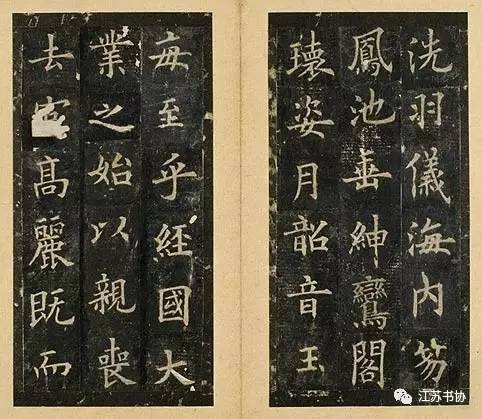 洗羽儀海内笏
鳳池垂紳鸞閣
瓌姿月韶音玉
每至乎經國大
業之始以親喪
去高麗既而
江苏书协